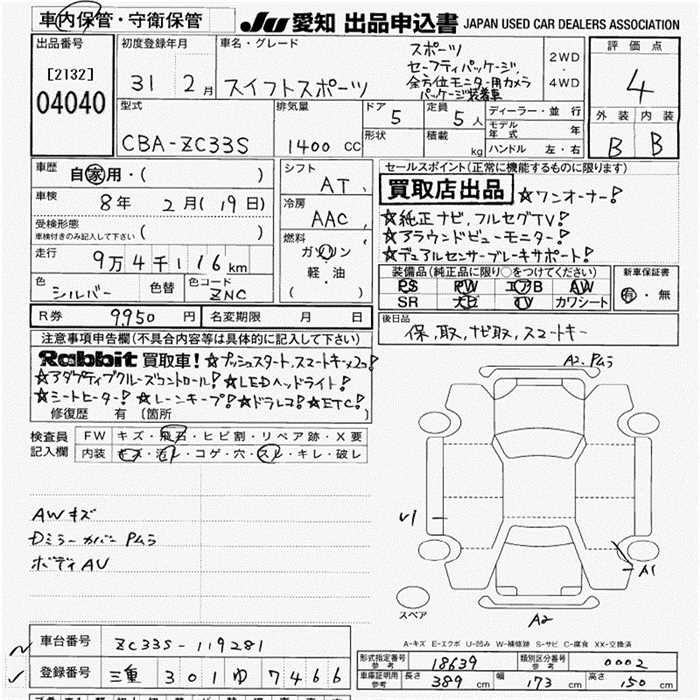 車内保管・守衛保管
JU 愛知 出品申込書 JAPAN USED CAR DEALERS ASSOCIATION
出品番号
[2132]
04040
初度登録年月
31 2月
車名・グレード
スイフトスポーツ
スポーツ
セーフティパッケージ,
全方位モニター用カメラ
パッケージ装着車
2WD
4WD
評価点
4
外装 内装
B B
型式
CBA-ZC33S
排気量
1400 CC
ドア 5
定員 5人
形状
積載 kg
ディーラー・並行
モデル年式 年
ハンドル 左・右
車歴
自家用・( )
車検
8年 2月(19日)
受検形態
車検付きのみ記入して下さい ( )
走行
9万4千116km
色 シルバー
色替
色コード ZNC
R券 9,950円
名変期限 月 日
シフト
AT,
冷房
AAC,
燃料
ガソリン
軽・油
( )
セールスポイント(正常に機能するものに限ります)
買取店出品 ☆ワンオーナー!
☆純正ナビ,フルセグTV!
☆アラウンドビューモニター!
☆デュアルセンサーブレーキサポート!
装備品(純正品に限り○をつけてください)
PS PW エアB AW
SR ナビ TV カワシート
新車保証書
有・無
後日品
保,取,ナビ取,スマートキー
注意事項申告欄(不具合内容等は具体的に記入して下さい)
Rabbit 買取車! ☆プッシュスタート,スマートキー×2コ!
☆アダプティブクルーズコントロール! ☆LEDヘッドライト!
☆シートヒーター! ☆レーンキープ! ☆ドラレコ! ☆ETC!
修復歴 有 〔箇所 〕
検査員
記入欄
FW キズ・飛石・ヒビ割・リペア跡・X要
内装 キズ・汚レ・コゲ・穴・スレ・キレ・破レ
AWキズ
Dミラーカバー Pムラ
ボディAU
A2.Pムラ
U1
A1
A2
スペア
A-キズ E-エクボ U-凹み W-補修跡 S-サビ C-腐食 XX-交換済
車台番号 ZC33S-119281
登録番号 三重 301 ゆ 7466
形式指定番号 参考 18639
類別区分番号 参考 0002
車庫証明用 参考 長さ 389cm 幅 173cm 高さ 150cm